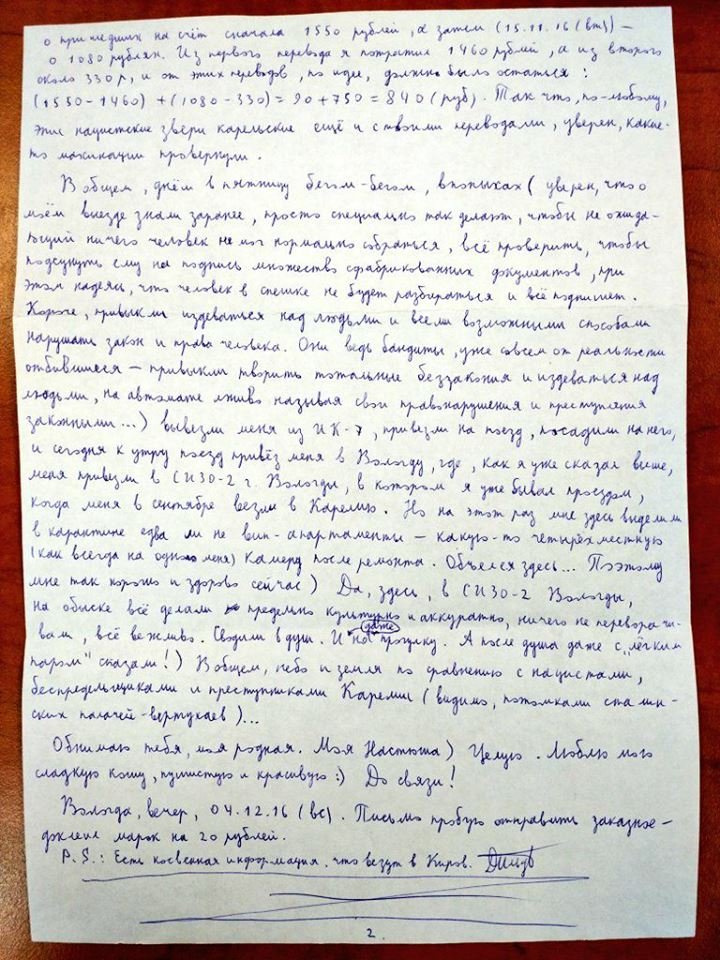 о пришедших на счёт сначала 1550 рублей, а затем (15.11.16 (вт)) –
о 1080 рублях. Из первого перевода я потратил 1460 рублей, а из второго
около 330 р, и от этих переводов, по идее, должно было остаться:
(1550-1460) + (1080-330) = 90+750 = 840 (руб). Так что, по-любому,
эти нацистские звери карельские ещё и с твоими переводами, уверен, какие-
то махинации провернули.
В общем, днём в пятницу бегом-бегом, впопыхах (уверен, что о
моём выезде знали заранее, просто специально так делают, чтобы не ожида-
ющий ничего человек не мог нормально собраться, всё проверить, чтобы
подсунуть ему на подпись множество сфабрикованных документов, при
этом надеясь, что человек в спешке не будет разбираться и всё подпишет.
Короче, привыкли издеваться над людьми и всеми возможными способами
нарушать закон и права человека. Они ведь бандиты, уже совсем от реальности
отбившиеся – привыкли творить тотальные беззакония и издеваться над
людьми, на автомате лживо называя свои правонарушения и преступления
законными...) вывезли меня из ИК-7, привезли на поезд, посадили на него,
и сегодня к утру поезд привёз меня в Вологду, где, как я уже сказал выше,
меня привезли в СИЗО-2 г. Вологды, в котором я уже бывал проездом,
когда меня в сентябре везли в Карелию. Но на этот раз мне здесь выделили
в карантине едва ли не вип-апартаменты – какую-то четырёхместную
(как всегда на одного меня) камеру после ремонта. Объелся здесь... Поэтому
мне так хорошо и здорово сейчас) Да, здесь, в СИЗО-2 Вологды,
на обыске всё делали предельно культурно и аккуратно, ничего не перевора чи-
вали, всё вежливо. Сводили в душ. И даже на прогулку. А после душа даже с „лёгким
паром" сказали!) В общем, небо и земля по сравнению с нацистами,
беспредельщиками и преступниками Карелии (видимо, потомками сталин-
ских палачей-вертухаев)...
Обнимаю тебя, моя родная. Моя Настюша) Целую. Люблю мою
сладкую кошу, пушистую и красивую :) До связи!
Вологда, вечер, 04.12.16 (вс). Письмо пробую отправить заказное –
доклеил марок на 20 рублей.
P.S.: Есть косвенная информация, что везут в Киров.
2.